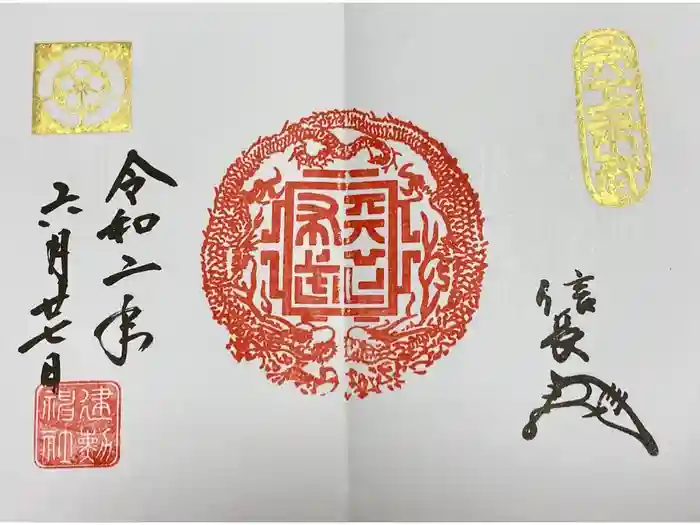 信長
天下
布武
令和二年
六月廿七日
建勲
神社